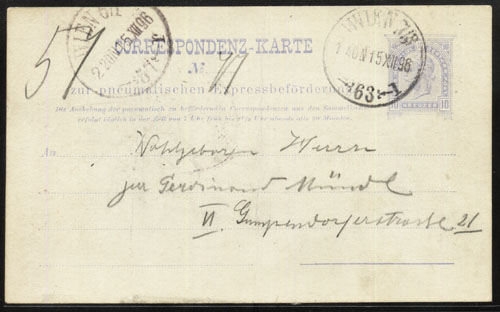 CORRESPONDENZ-KARTE
57
No
zur pneumatischen Expressbeförderung
Die Aushebung der pneumatisch zu befördernden Correspondenzen aus den Sammelkästen
erfolgt täglich in der Zeit von 7 Uhr früh bis 9 Uhr abends alle 20 Minuten.
15 XII 96
15 XII 96
63
10
10
An Wohlgeboren Herrn
Ferdinand Mündl
VI. Gumpendorferstrasse 21